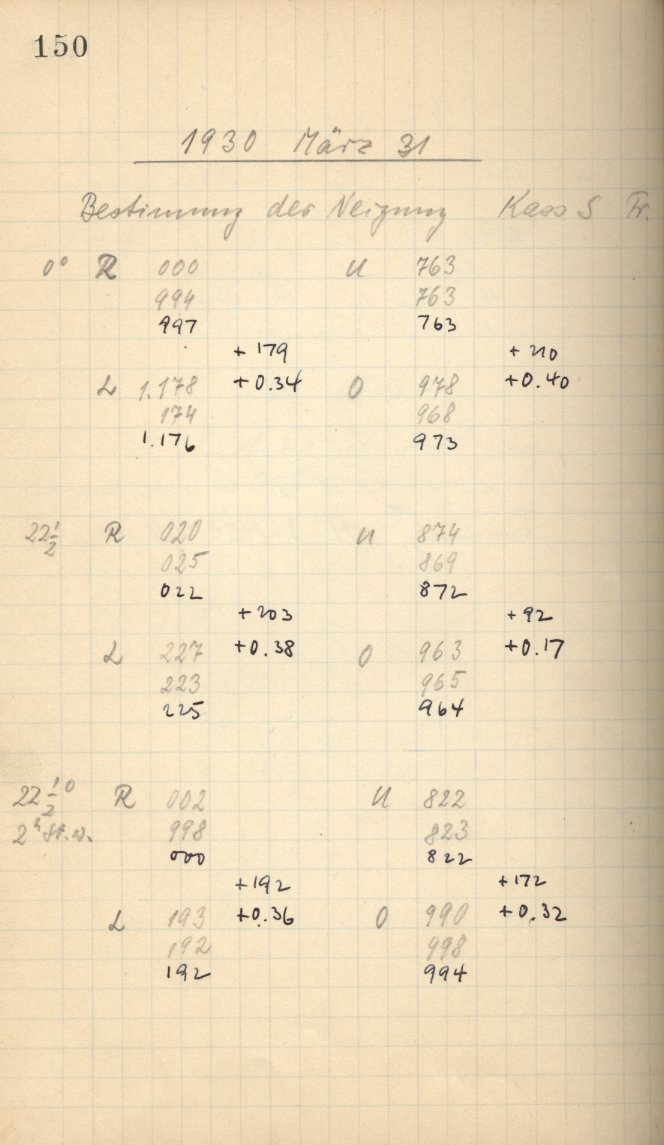 150
1930 März 31
Bestimmung der Neigung Kass S Fr.
0° R 000 U 763
994 763
997 763
+179 +210
L 1.178 +0.34 O 978 +0.40
174 968
1.176 973
22 1/2 R 020 U 874
025 869
022 872
+203 +92
L 227 +0.38 O 963 +0.17
223 965
225 964
22 1/2° R 002 U 822
2h 998 823
000 822
+192 +172
L 193 +0.36 O 990 +0.32
192 998
192 994